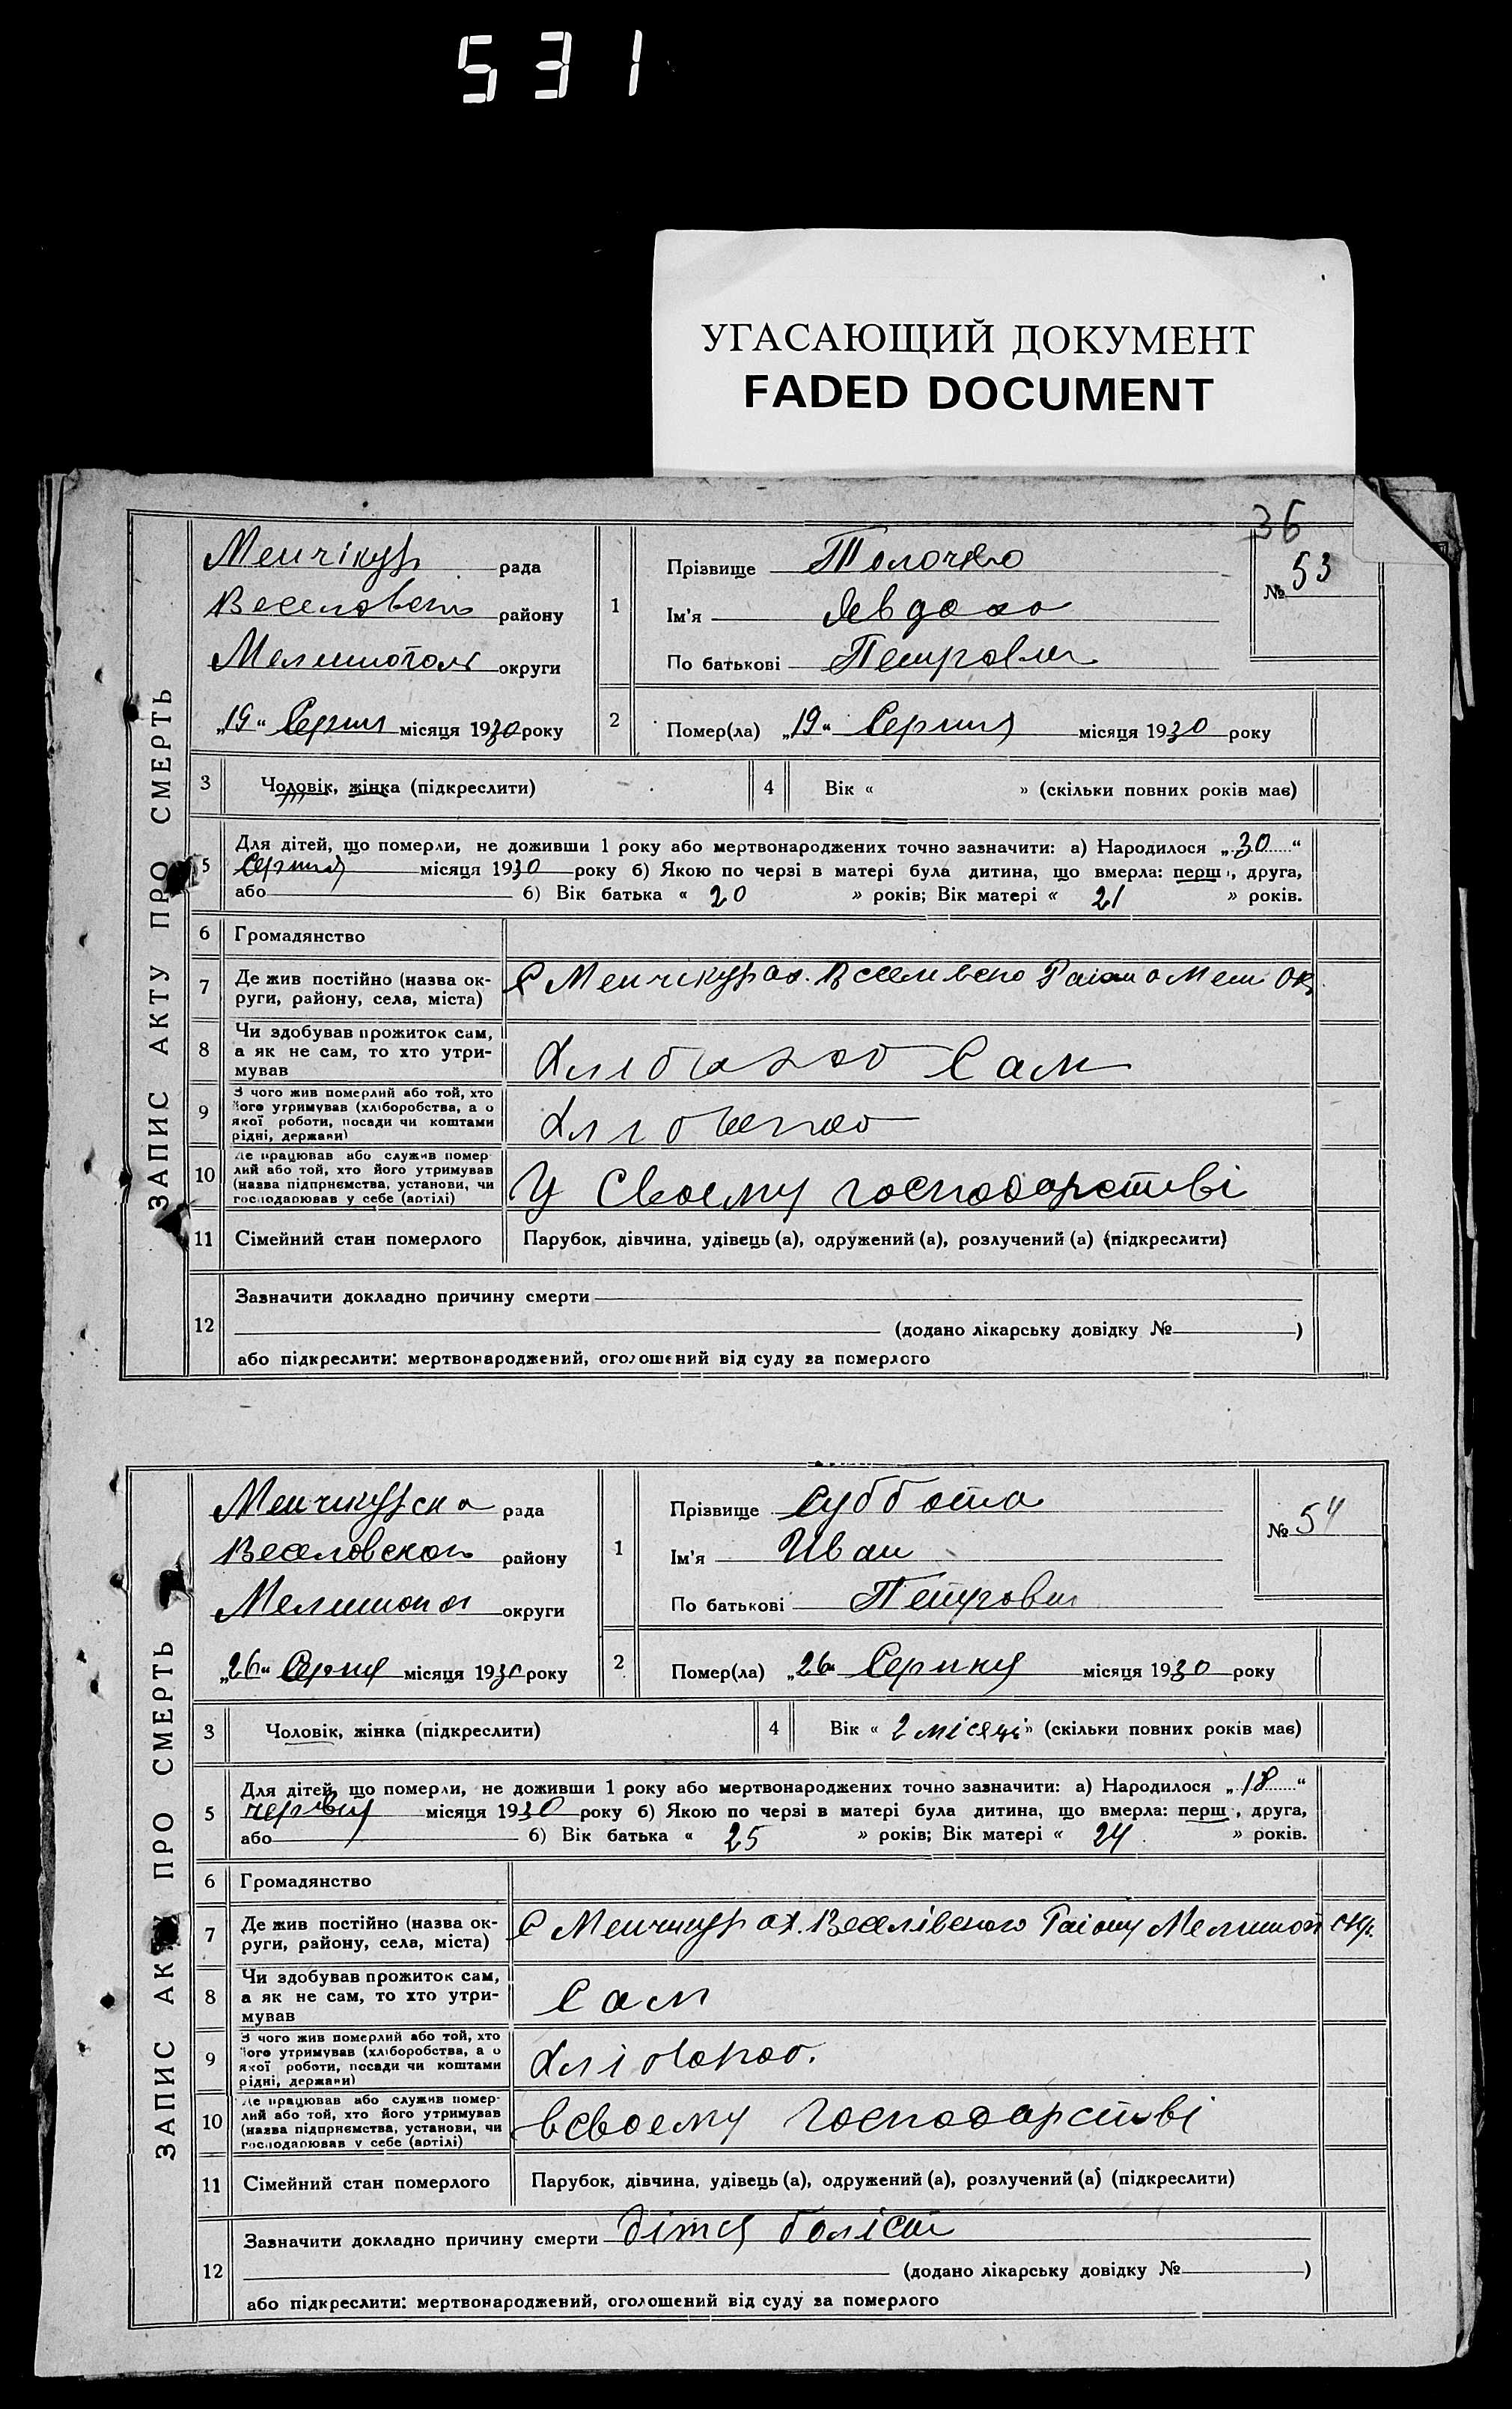 531
УГАСАЮЩИЙ ДОКУМЕНТ
FADED DOCUMENT
36
ЗАПИС АКТУ ПРО СМЕРТЬ
Менчікур рада
Веселовсь району
Мелітополь округи
„19“ Серпня місяця 1930 року
1
Прізвище Толочко
Ім'я Явдоха
По батькові Петровна
№ 53
2 Помер(ла) „19“ Серпня місяця 1930 року
3 Чоловік, жінка (підкреслити)
4 Вік « » (скільки повних років має)
5 Для дітей, що померли, не доживши 1 року або мертвонароджених точно зазначити: а) Народилося „30“
Серпня місяця 1930 року б) Якою по черзі в матері була дитина, що вмерла: перш, друга,
або б) Вік батька « 20 » років; Вік матері « 21 » років.
6 Громадянство
7 Де жив постійно (назва округи, району, села, міста)
С Менчікурах. Району Мел Окр
8 Чи здобував прожиток сам,
а як не сам, то хто утри-
мував
Сам
9 З чого жив померлий або той, хто
його утримував (хліборобства, а о
якої роботи, посади чи коштами
рідні, держави)
10 Де працював або служив помер-
лий або той, хто його утримував
(назва підприємства, установи, чи
господарював у себе (артілі)
У Своєму господарстві
11 Сімейний стан померлого Парубок, дівчина, удівець (а), одружений (а), розлучений (а) (підкреслити)
12 Зазначити докладно причину смерти
(додано лікарську довідку № )
або підкреслити: мертвонароджений, оголошений від суду за померлого
ЗАПИС АК ПРО СМЕРТЬ
Менчикурска рада
Веселовского району
Мелитопол округи
„26“ Серпня місяця 1930 року
1
Прізвище Суббота
Ім'я Иван
По батькові Петрович
№ 54
2 Помер(ла) „26“ Серпня місяця 1930 року
3 Чоловік, жінка (підкреслити)
4 Вік « 2 місяці » (скільки повних років має)
5 Для дітей, що померли, не доживши 1 року або мертвонароджених точно зазначити: а) Народилося „18“
червня місяця 1930 року б) Якою по черзі в матері була дитина, що вмерла: перш, друга,
або б) Вік батька « 25 » років; Вік матері « 24 » років.
6 Громадянство
7 Де жив постійно (назва ок-
руги, району, села, міста)
С Менчикурах. Веселівского Району Мелитоп окр.
8 Чи здобував прожиток сам,
а як не сам, то хто утри-
мував
Сам
9 З чого жив померлий або той, хто
його утримував (хліборобства, а о
якої роботи, посади чи коштами
рідні, держави)
10 Де працював або служив помер-
лий або той, хто його утримував
(назва підприємства, установи, чи
господарював у себе (артілі)
в своему господарстві
11 Сімейний стан померлого Парубок, дівчина, удівець (а), одружений (а), розлучений (а) (підкреслити)
12 Зазначити докладно причину смерти
(додано лікарську довідку № )
або підкреслити: мертвонароджений, оголошений від суду за померлого